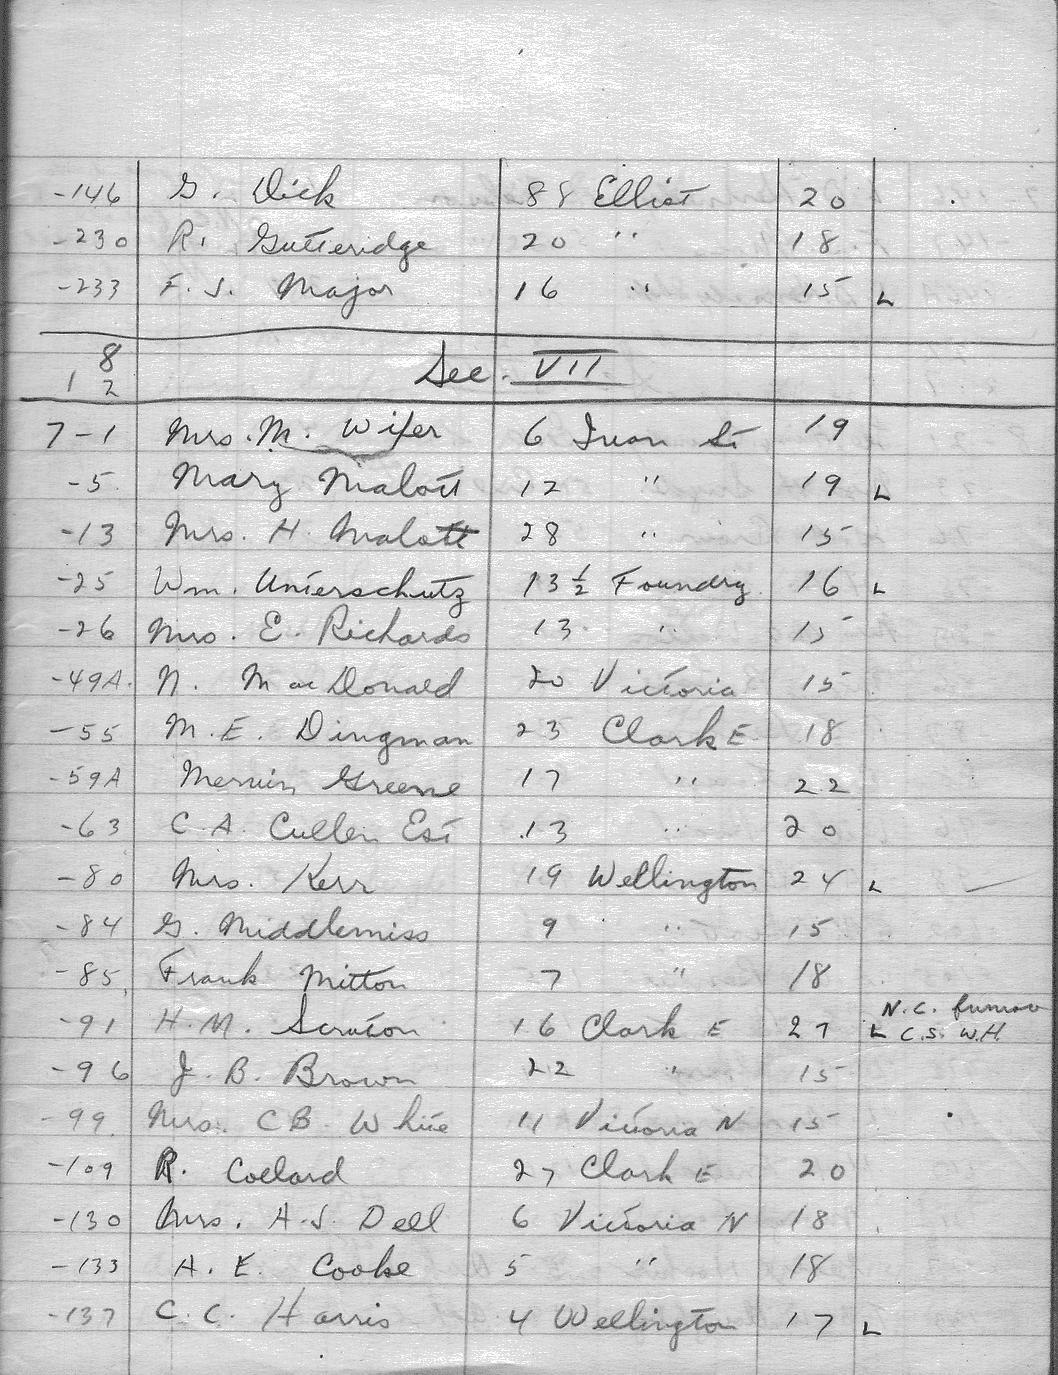 -146 G. Dick 88 Elliot 20
-230 R. Gutteridge 20 " 18
-233 F. J. Major 16 " 15 L
8
12 Sec. VII
7-1 Mrs. M. Wifer 6 Ivan St 19
-5 Mary Malott 12 " 19 L
-13 Mrs. H. Malott 28 " 15
-25 Wm. Unterschutz 13 ½ Foundry 16 L
-26 Mrs. E. Richards 13 " 15
-49A N. MacDonald 20 Victoria 15
-55 M. E. Dingman 23 Clark E 18
-59A Mervin Greene 17 " 22
-63 C. A. Cullen Est 13 " 20
-80 Mrs. Kerr 19 Wellington 24 L
-84 G. Middlemiss 9 " 15
-85 Frank Mitton 7 " 18
N.C. furnace
-91 H. M. Scruton 16 Clark E 27 L C.S. W.H.
-96 J. B. Brown 22 " 15
-99 Mrs. C B. White 11 Victoria N 15
-109 R. Collard 27 Clark E 20
-130 Mrs. A. J. Dell 6 Victoria N 18
-133 A. E. Cooke 5 " 18
-137 C. C. Harris 4 Wellington 17 L